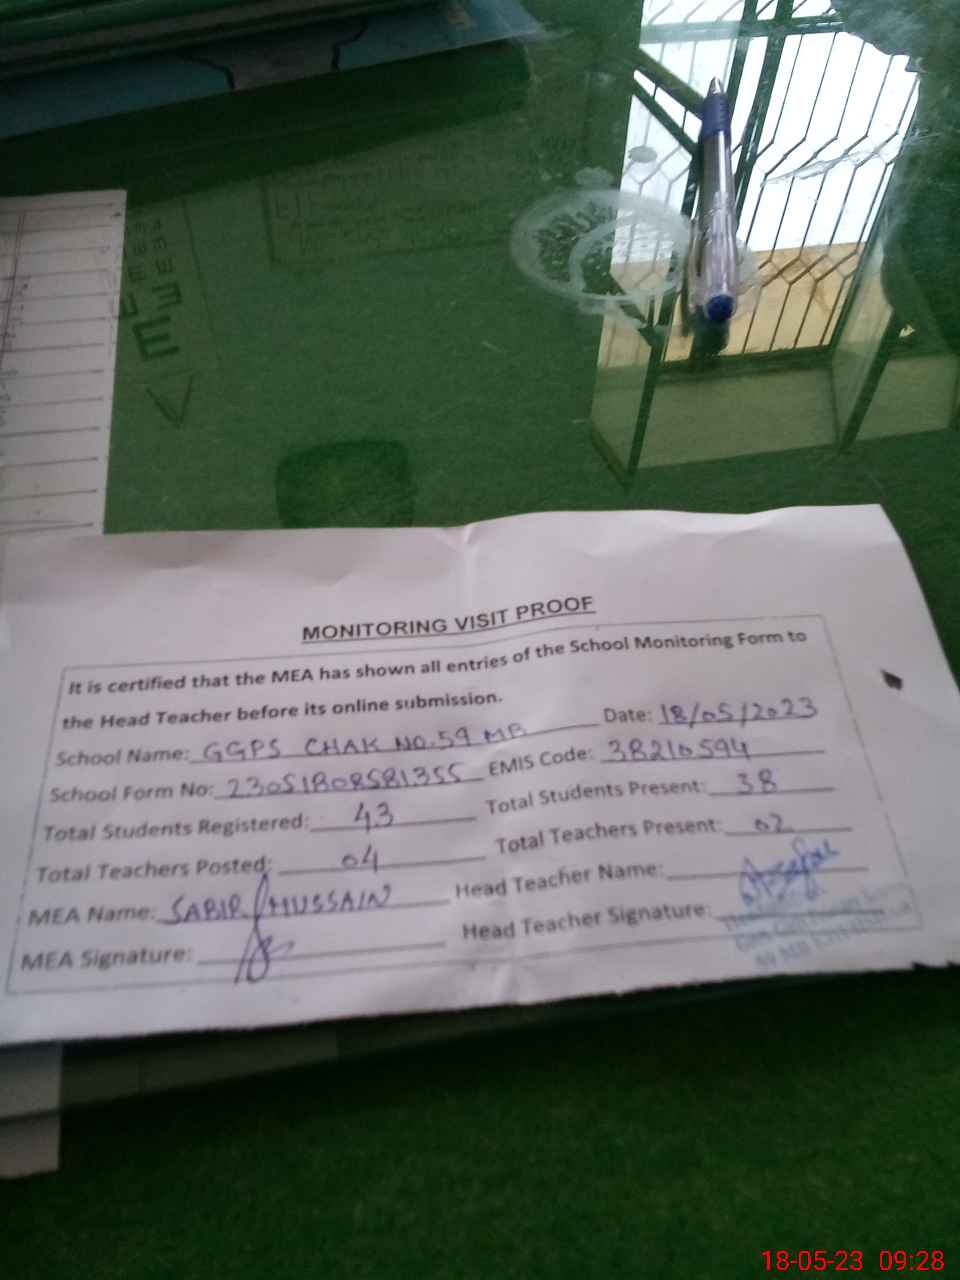 MONITORING VISIT PROOF
It is certified that the MEA has shown all entries of the School Monitoring Form to
the Head Teacher before its online submission.
School Name: GGPS CHAK NO.59 MB Date: 18/05/2023
School Form No: 23051808581355 EMIS Code: 38210594
Total Students Registered: 43 Total Students Present: 38
Total Teachers Posted: 04 Total Teachers Present: 02
MEA Name: SABIR HUSSAIN Head Teacher Name:
MEA Signature: Head Teacher Signature:
18-05-23 09:28